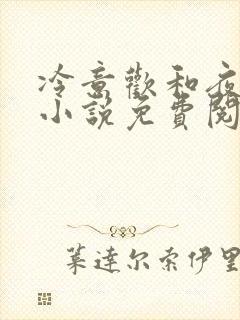 冷意歡和夜
小說免費閱
葉達尔索伊里